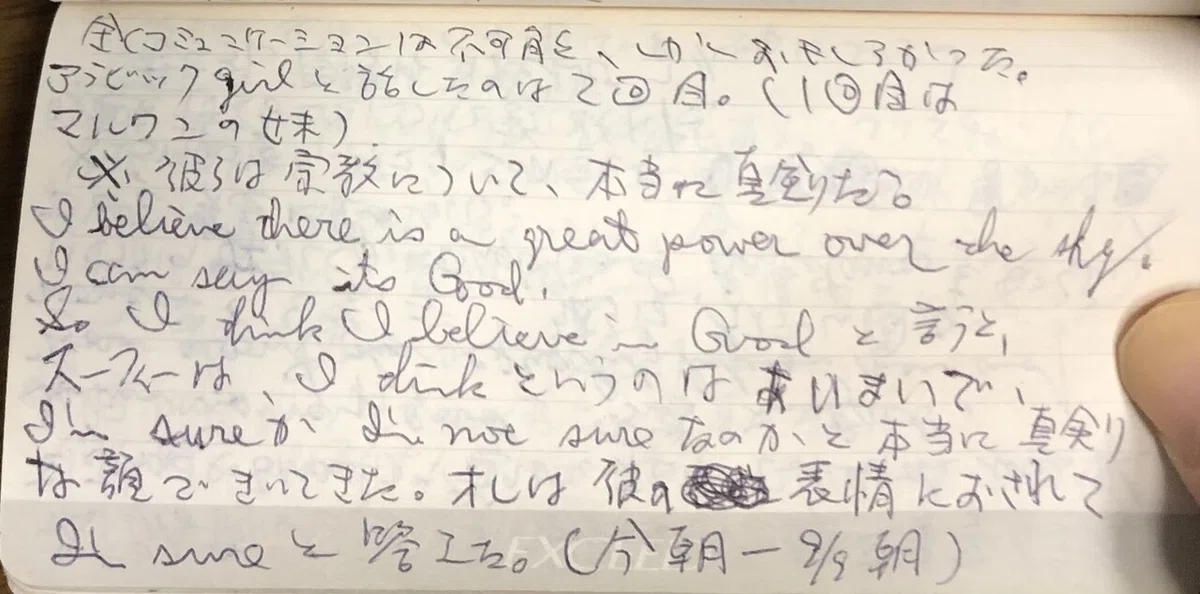 全くコミュニケーションは不可能を、しかしおもしろかった。
アラビック girl と話したのは2回目。(1回目は
マルワンの妹)
※ 彼らは宗教について、本当に真剣だ。
I believe there is a great power over the sky.
I can say its Good.
So I think I believe in Good と言うと、
スーフィーは、I think というのはあいまいで、
I'm sure か I'm not sure なのかと本当に真剣
な顔できいてきた。オレは彼の表情におされて
I'm sure と答えた。(今朝ー9/9朝)
EXCEL